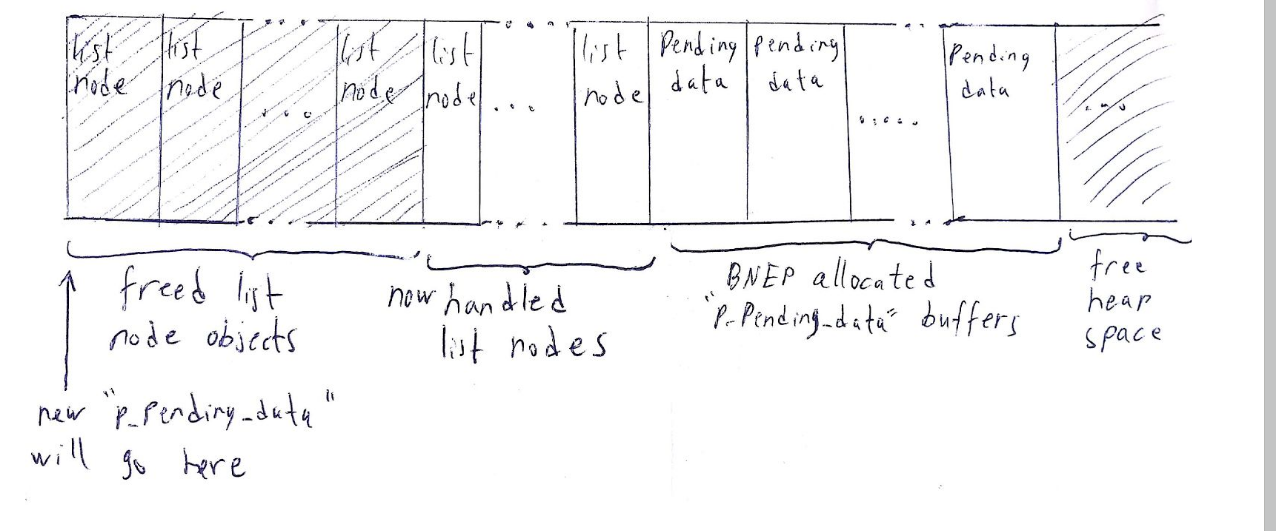 list
node
list
node
....
list
node
list
node
...
list
node
Pending
data
pending
data
.....
Pending
data
...
freed list
node objects
now handled
list nodes
BNEP allocated
"P_Pending_data" buffers
free
heap
space
new "p_Pending_data"
will go here